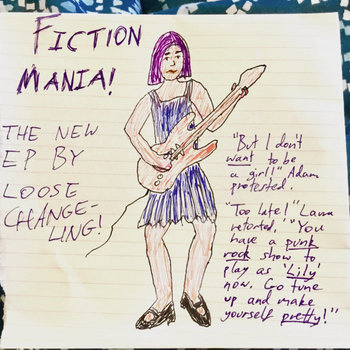 FICTION
MANIA!
THE NEW
EP BY
LOOSE
CHANGE-
LING!
"But I don't
want to be
a girl!" Adam
protested.
"Too late!" Laura
retorted. "You
have a punk
rock show to
play as 'Lily'
now. Go tune
up and make
yourself pretty!"